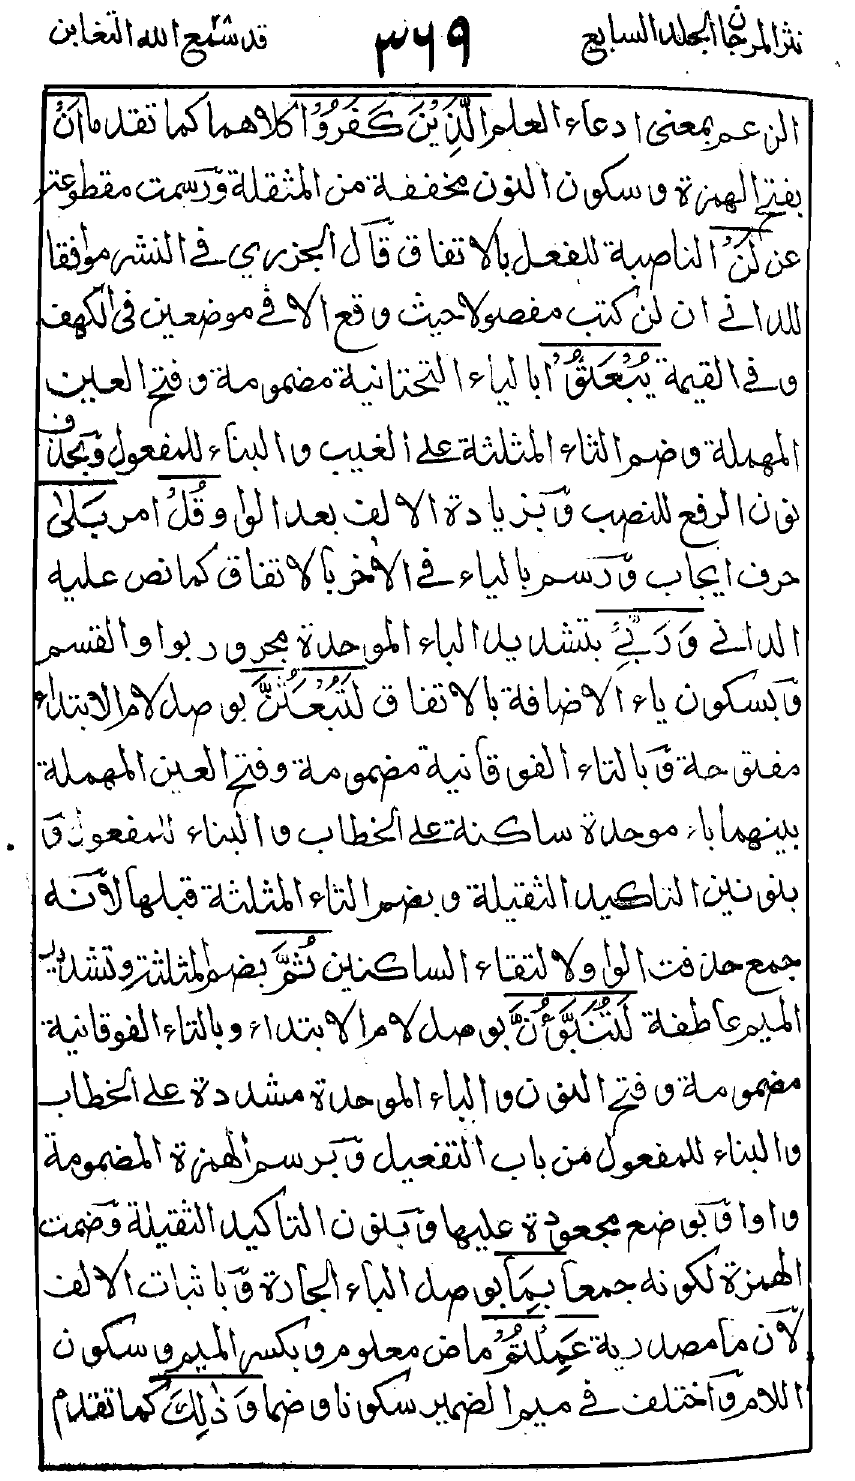 نثر المرجان الجلد السابع ٣٦٩ قد سمع الله التغابن
الزعم بمعنى ادعاء العلم الَّذِيْنَ كَفَرُوْا كلاهما كما تقدما اَنْ
بفتح الهمزة و سكون النون مخففة من المثقلة وَرسمت مقطوعة
عن لَنْ الناصبة للفعل بالاتفاق قال الجزري في النشر موافقا
للداني ان لن كتب مفصولا حيث وقع الا في موضعين في الكهف
و في القيمة يُبْعَثُوْا بالياء التحتانية مضمومة و فتح العين
المهملة و ضم الثاء المثلثة على الغيب و البناء للمفعول وَبحذف
نون الرفع للنصب وَبزيادة الالف بعد الواو قُلْ امر بَلٰى
حرف ايجاب وَرسم بالياء في الاٰخر بالاتفاق كما نص عليه
الداني وَرَبِّيْ بتشديد الباء الموحدة مجرور بواو القسم
وَبسكون ياء الاضافة بالاتفاق لَتُبْعَثُنَّ بوصل لام الابتداء
مفتوحة وَبالتاء الفوقانية مضمومة و فتح العين المهملة
بينهما باء موحدة ساكنة على الخطاب و البناء للمفعول وَ
بنونين التاكيد الثقيلة و بضم الثاء المثلثة قبلها لاَنه
جمع حذفت الواو لالتقاء الساكنين ثُمَّ بضم المثلثة و تشديد
الميم عاطفة لَتُنَبَّؤُنَّ بوصل لام الابتداء و بالتاء الفوقانية
مضمومة و فتح النون و الباء الموحدة مشددة على الخطاب
و البناء للمفعول من باب التفعيل وَبرسم الهمزة المضمومة
واوا وَبوضع مجعودة عليها وَبنون التاكيد الثقيلة وَضمت
الهمزة لكونه جمعا بِمَا بوصل الباء الجارة وَباثبات الالف
لاَن ما مصدرية عَمِلْتُمْ ماض معلوم و بكسر الميم و سكون
اللام وَاختلف في ميم الضمير سكونا و ضما وَذٰلِكَ كما تقدم